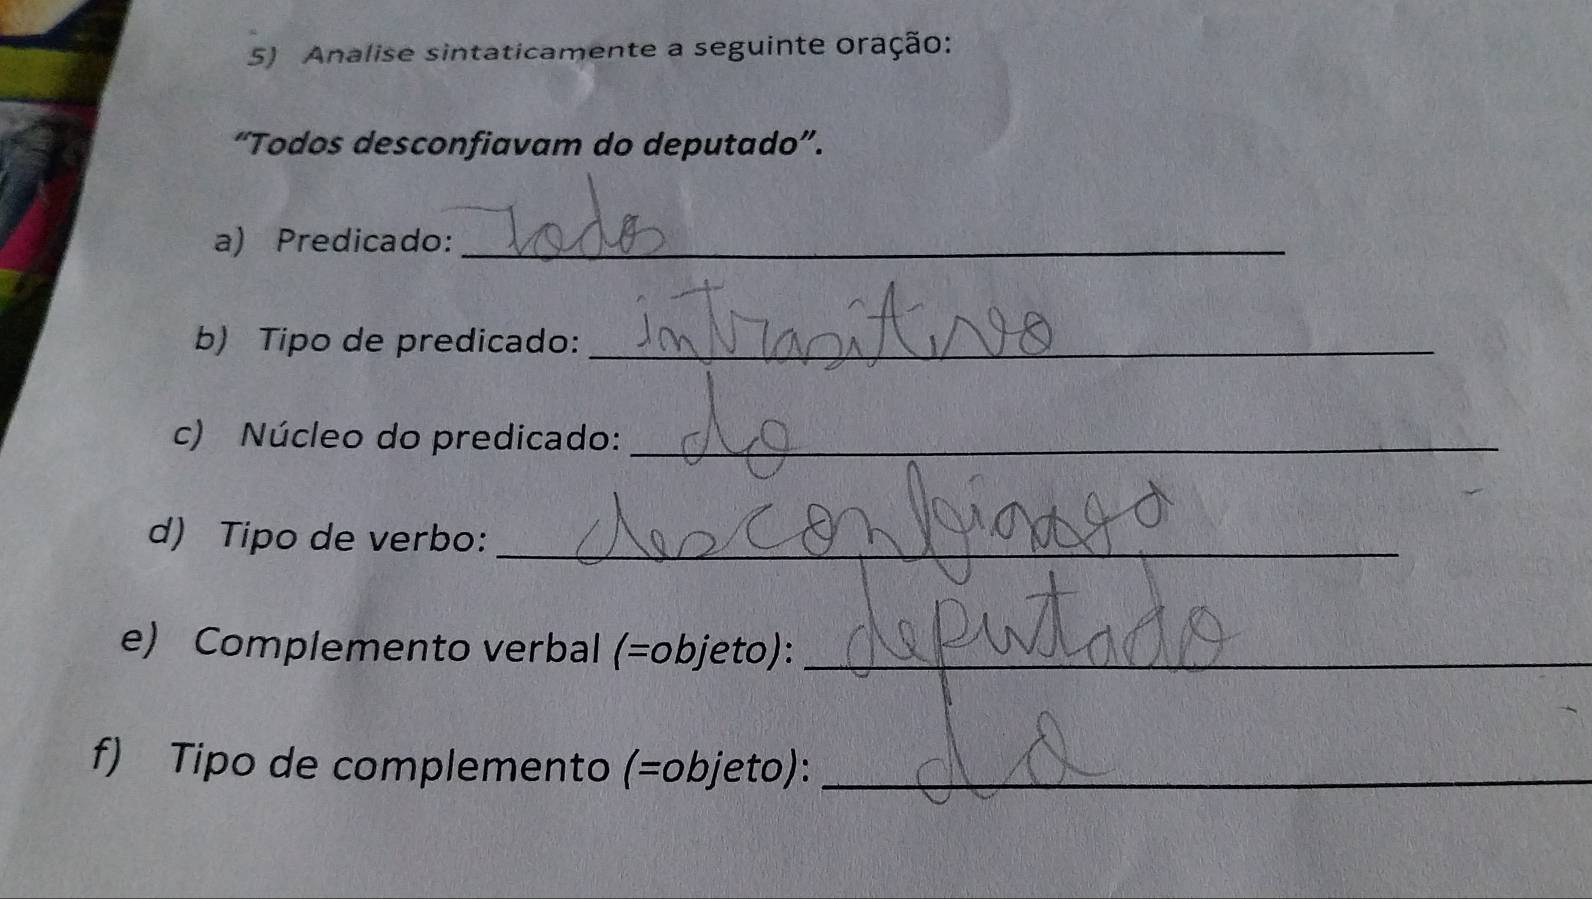 5) Analise sintaticamente a seguinte oração:
“Todos desconfiavam do deputado”.
a) Predicado: Todos
b) Tipo de predicado: intrasitivo
c) Núcleo do predicado: do
d) Tipo de verbo:
e) Complemento verbal (=objeto): deputado
f) Tipo de complemento (=objeto): do